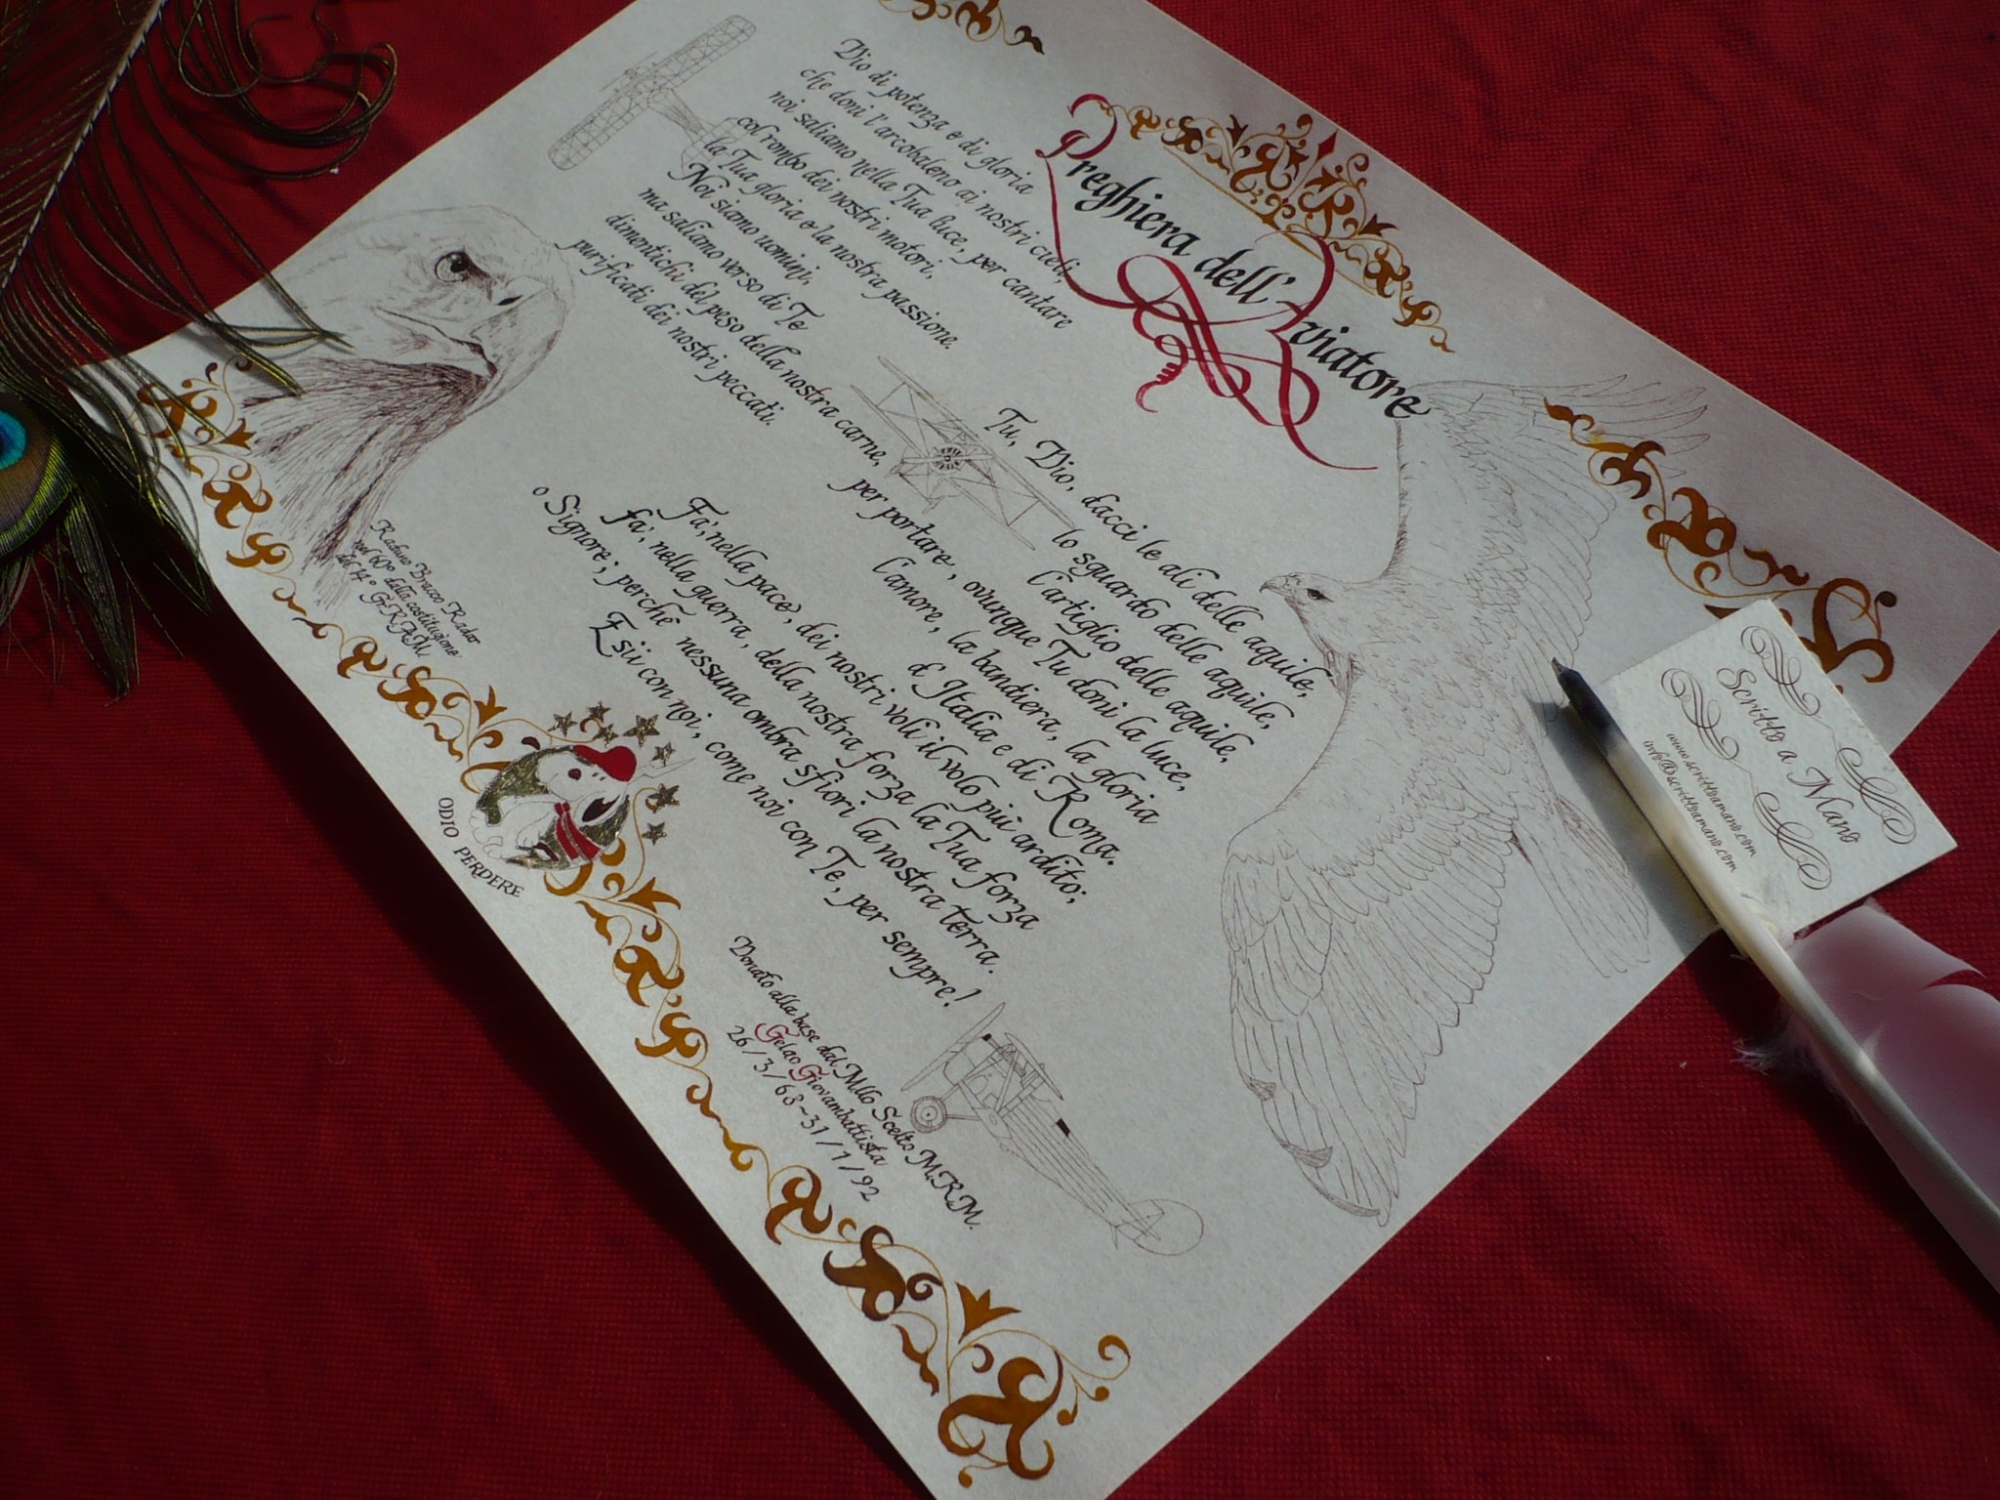 Preghiera dell'Aviatore
Dio di potenza e di gloria
che doni l'arcobaleno ai nostri cieli,
noi saliamo nella Tua luce, per cantare
col rombo dei nostri motori,
la Tua gloria e la nostra passione.
Noi siamo uomini,
ma saliamo verso di Te
dimentichi del peso della nostra carne,
purificati dei nostri peccati.
Tu, Dio, dacci le ali delle aquile,
lo sguardo delle aquile,
l'artiglio delle aquile,
per portare, ovunque Tu doni la luce,
l'amore, la bandiera, la gloria
d'Italia e di Roma.
Fa', nella pace, dei nostri voli il volo più ardito;
fa', nella guerra, della nostra forza la Tua forza
o Signore; perchè nessuna ombra sfiori la nostra terra.
E sii con noi, come noi con Te, per sempre!
Raduno Bravo Radar
nel 60° della costituzione
del 14° G.R.A.M.
ODIO PERDERE
Donato alla base dal M.llo Scelto M.R.M.
Gelao Giovambattista
26/3/68-31/1/92
Scritto a Mano
www.scrittoamano.com
info@scrittoamano.com